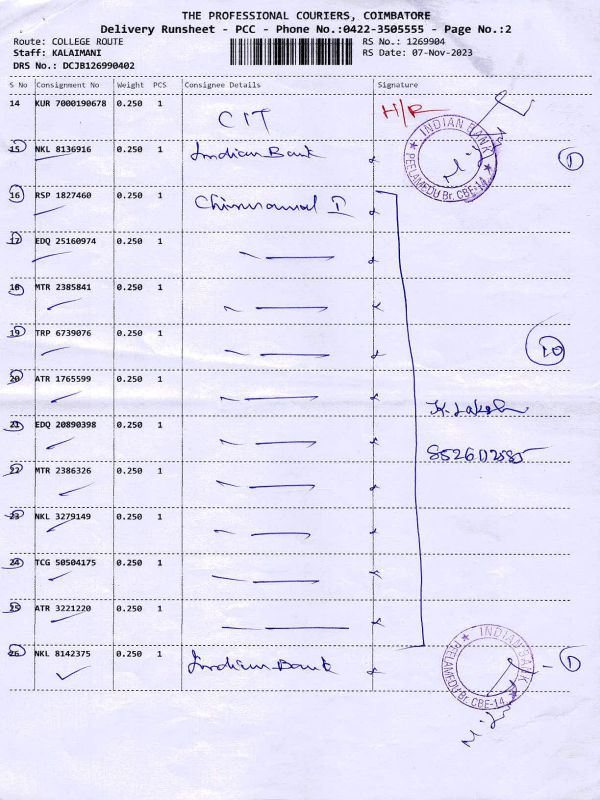 THE PROFESSIONAL COURIERS, COIMBATORE
Delivery Runsheet - PCC - Phone No.:0422-3505555 - Page No.:2
Route: COLLEGE ROUTE RS No.: 1269904
Staff: KALAIMANI RS Date: 07-Nov-2023
DRS No.: DCJB126990402
S No Consignment No Weight PCS Consignee Details Signature
14 KUR 7000190678 0.250 1 CIT H/R
15 NKL 8136916 0.250 1 Indian Bank INDIAN BANK PEELAMEDU Br. CBE-14 1
16 RSP 1827460 0.250 1
17 EDQ 25160974 0.250 1
18 MTR 2385841 0.250 1
19 TRP 6739076 0.250 1 10
20 ATR 1765599 0.250 1
21 EDQ 20890398 0.250 1
22 MTR 2386326 0.250 1
23 NKL 3279149 0.250 1
24 TCG 50504175 0.250 1
25 ATR 3221220 0.250 1
26 NKL 8142375 0.250 1 Indian Bank INDIAN BANK PEELAMEDU Br. CBE-14 1